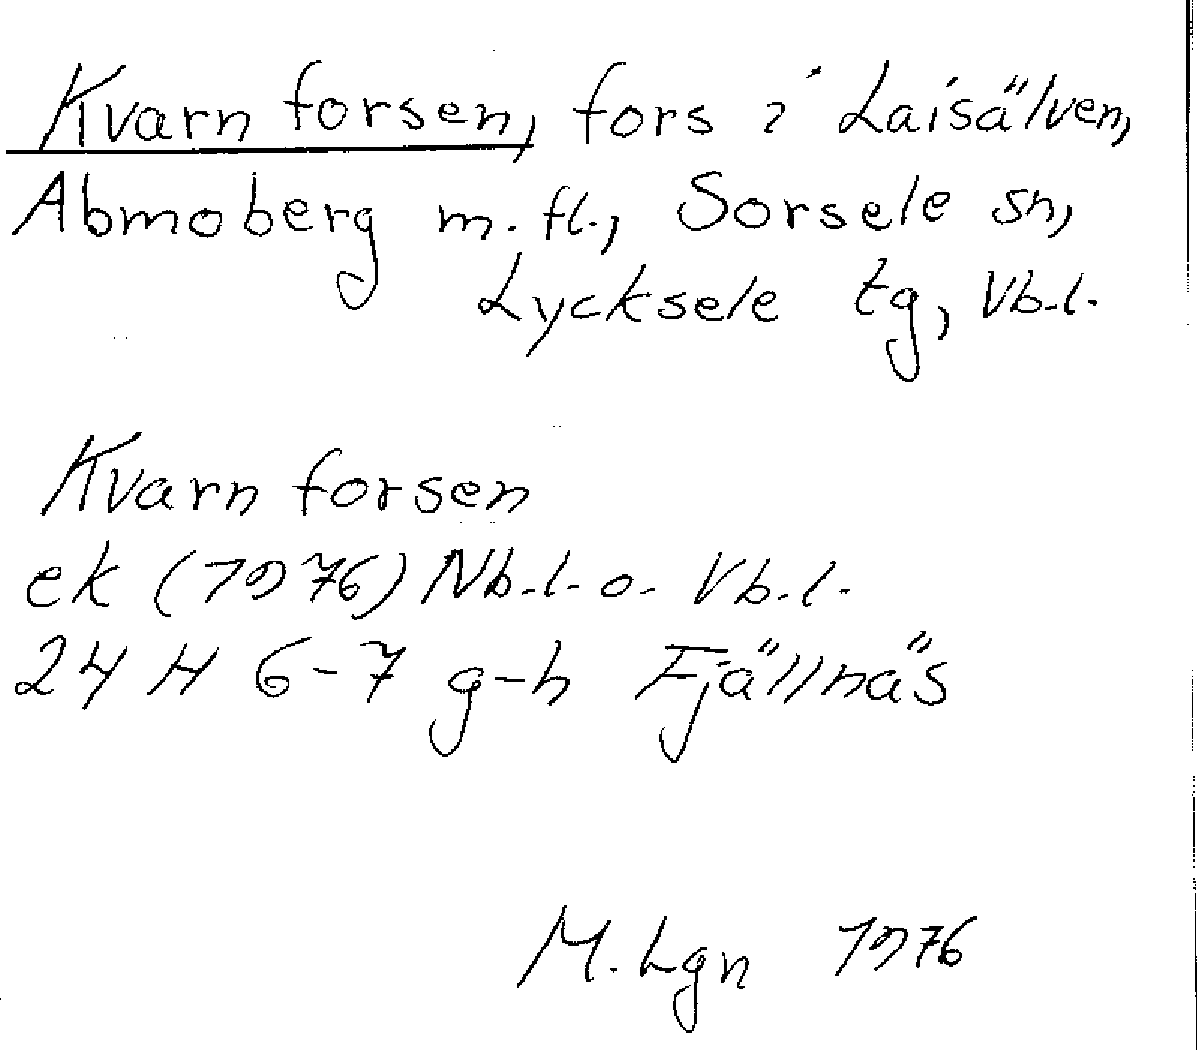 Kvarnforsen, fors i Laisälven,
Abmoberg m. fl., Sorsele sn,
Lycksele tg, Vb.l.
Kvarnforsen
ek (1976) Nb.l. o. Vb.l.
24 H 6-7 g-h Fjällnäs
M. Lgn 1976